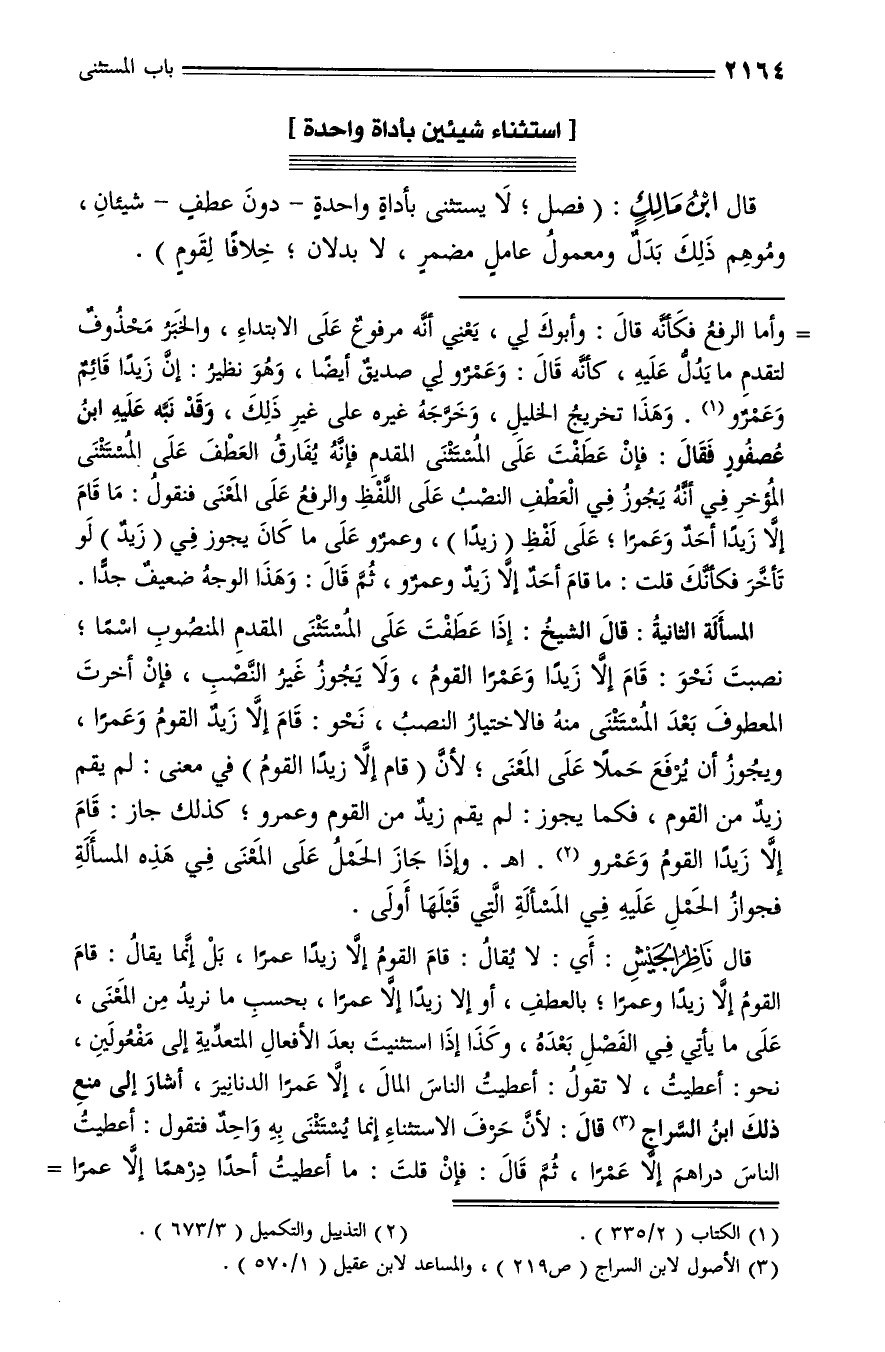 ٢١٦٤ باب المستثنى
[ استثناء شيئين بأداة واحدة ]
قال ابْنُ مَالِكٍ : ( فصل ؛ لَا يستثنى بأداةٍ واحدةٍ - دونَ عطفٍ - شيئانِ ،
ومُوهِم ذَلِكَ بَدَلٌ ومعمولُ عاملٍ مضمرٍ ، لا بدلان ؛ خِلافًا لِقَومٍ ) .
= وأما الرفعُ فكَأنَّه قالَ : وأبوكَ لِي ، يَعْنِي أنَّه مرفوعٌ عَلَى الابتداءِ ، والخَبَرُ مَحْذُوفٌ
لتقدمِ ما يَدُلُّ عَلَيهِ ، كأنَّه قَالَ : وَعَمْرٌو لِي صديقٌ أيضًا ، وَهُوَ نظيرُ : إنَّ زَيدًا قَائِمٌ
وَعَمْرٌو (١) . وَهَذَا تخريجُ الخليلِ ، وَخَرَّجَهُ غيره على غيرِ ذَلِكَ ، وَقَدْ نَبَّه عَلَيهِ ابنُ
عُصفُورٍ فَقَالَ : فإنْ عَطَفْتَ عَلَى المُسْتَثْنَى المقدمِ فإنَّهُ يُفَارِقُ العَطْفَ عَلَى المُسْتَثْنَى
المُؤخرِ فِي أنَّهُ يَجُوزُ فِي الْعَطْفِ النصْبُ عَلَى اللَّفْظِ والرفعُ عَلَى المَعْنَى فنقولُ : مَا قَامَ
إلَّا زَيدًا أحَدٌ وَعَمرًا ؛ عَلَى لَفْظِ ( زيدًا ) ، وعمرٌو عَلَى ما كَانَ يجوز فِي ( زَيدٌ ) لَو
تَأخَّرَ فكأنَّكَ قلت : ما قامَ أحَدٌ إلَّا زَيدٌ وعمرٌو ، ثُمَّ قَالَ : وَهَذَا الوجهُ ضعيفٌ جدًّا .
المسأَلَة الثانيةُ : قالَ الشيخُ : إذَا عَطَفْتَ عَلَى المُسْتَثْنَى المقدمِ المنصُوبِ اسْمًا ؛
نصبتَ نَحْوَ : قَامَ إلَّا زَيدًا وَعَمْرًا القومُ ، وَلَا يَجُوزُ غَيرُ النَّصْبِ ، فإنْ أخرتَ
المعطوفَ بَعْدَ المُسْتَثْنَى منهُ فالاختيارُ النصبُ ، نَحْو : قَامَ إلَّا زَيدٌ القومُ وَعَمرًا ،
ويجُوزُ أن يُرْفَعَ حَملًا عَلَى المَعْنَى ؛ لأنَّ ( قام إلَّا زيدًا القومُ ) في معنى : لم يقم
زيدٌ من القوم ، فكما يجوز : لم يقم زيدٌ من القوم وعمرو ؛ كذلك جاز : قَامَ
إلَّا زَيدًا القومُ وَعَمْرو (٢) . اهـ . وإذَا جَازَ الحَمْلُ عَلَى المَعْنَى فِي هَذِه المسأَلَةِ
فجوازُ الحَمْلِ عَلَيهِ فِي المَسْألَةِ الَّتِي قَبْلَهَا أَولَى .
قال نَاظِرُ الجَيْشِ : أَي : لا يُقالُ : قامَ القومُ إلَّا زيدًا عمرًا ، بَلْ إنَّما يقالُ : قامَ
القومُ إلَّا زيدًا وعمرًا ؛ بالعطفِ ، أو إلا زيدًا إلَّا عمرًا ، بحسبِ ما نريدُ مِن المَعْنَى ،
عَلَى ما يأتِي فِي الفَصْلِ بَعْدَهُ ، وكَذَا إذَا استثنيتَ بعدَ الأفعالِ المتعدِّيةِ إلى مَفْعُولَينِ ،
نحو : أعطيتُ ، لا تقولُ : أعطيتُ الناسَ المالَ ، إلَّا عَمرًا الدنانِيرَ ، أشارَ إلى منعِ
ذلكَ ابنُ السَّراجِ (٣) قالَ : لأنَّ حَرْفَ الاستثناءِ إنما يُسْتَثْنَى بِهِ وَاحِدٌ فتقول : أعطيتُ
الناسَ دراهمَ إلَّا عَمْرًا ، ثُمَّ قَالَ : فإنْ قلتَ : ما أعطيتُ أحدًا دِرْهمًا إلَّا عمرًا =
(١) الكتاب ( ٣٣٥/٢ ) . (٢) التذييل والتكميل ( ٦٧٣/٣ ) .
(٣) الأصول لابن السراج ( ص٢١٩ ) ، والمساعد لابن عقيل ( ٥٧٠/١ ) .